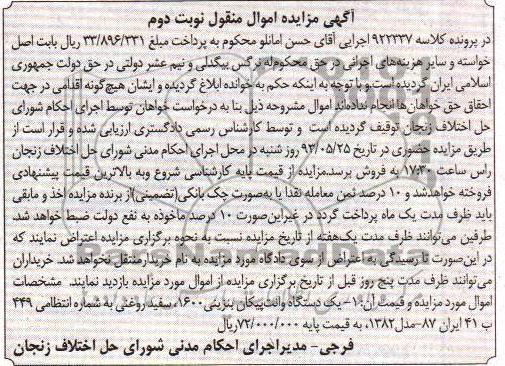 آگهی مزایده اموال منقول نوبت دوم
در پرونده کلاسه ۹۲۲۲۳۷ اجرایی آقای حسن امانلو محکوم به پرداخت مبلغ ۳۳/۸۹۶/۲۳۱ ریال بابت اصل
خواسته و سایر هزینه‌های اجرائی در حق محکوم‌له نرگس بیگدلی و نیم عشر دولتی در حق دولت جمهوری
اسلامی ایران گردیده است و با توجه به اینکه حکم به خوانده ابلاغ گردیده و ایشان هیچ‌گونه اقدامی در جهت
احقاق حق خواهان‌ها انجام نداده‌اند اموال مشروحه ذیل بنا به درخواست خواهان توسط اجرای احکام شورای
حل اختلاف زنجان توقیف گردیده است و توسط کارشناس رسمی دادگستری ارزیابی شده و قرار است از
طریق مزایده حضوری در تاریخ ۹۳/۰۵/۲۵ روز شنبه در محل اجرای احکام مدنی شورای حل اختلاف زنجان
راس ساعت ۱۷:۳۰ به فروش برسد.مزایده از قیمت پایه کارشناسی شروع وبه بالاترین قیمت پیشنهادی
فروخته خواهدشد و ۱۰ درصد ثمن معامله نقدا یا به‌صورت چک بانکی(تضمینی)از برنده مزایده اخذ و مابقی
باید ظرف مدت یک ماه پرداخت گردد در غیراین‌صورت ۱۰ درصد ماخوذه به نفع دولت ضبط خواهد شد.
طرفین می‌توانند ظرف مدت یک‌هفته از تاریخ مزایده نسبت به نحوه برگزاری مزایده اعتراض نمایند که
در این‌صورت تا رسیدگی به اعتراض از سوی دادگاه مورد مزایده به نام خریدار منتقل نخواهد شد. خریداران
می‌توانند ظرف مدت پنج روز قبل از تاریخ برگزاری مزایده از اموال مورد مزایده بازدید نمایند. مشخصات
اموال مورد مزایده و قیمت آن:۱- یک دستگاه وانت‌پیکان بنزینی۱۶۰۰، سفید روغنی به شماره انتظامی ۴۴۹
ب ۴۱ ایران ۸۷-مدل۱۳۸۲، به قیمت پایه ۷۲/۰۰۰/۰۰۰ریال
فرجی- مدیراجرای احکام مدنی شورای حل اختلاف زنجان